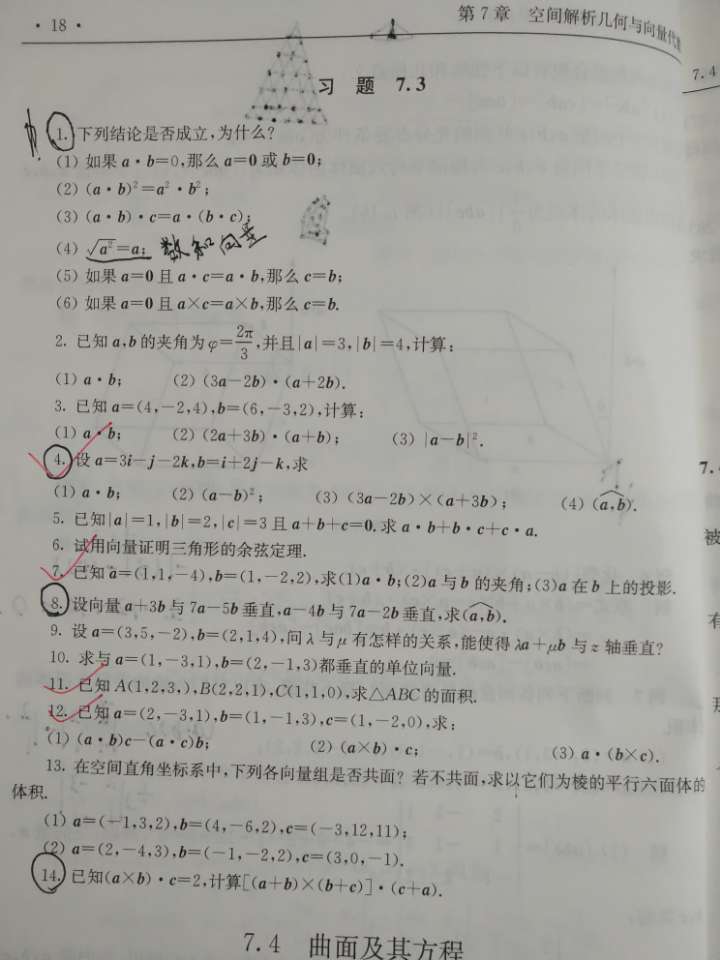 · 18 ·
第 7 章 空间解析几何与向量代
7.4
习 题 7.3
1. 下列结论是否成立,为什么?
(1) 如果 a · b=0,那么 a=0 或 b=0;
(2) (a · b)²=a² · b²;
(3) (a · b) · c=a · (b · c);
(4) √a²=a; 数和向量
(5) 如果 a=0 且 a · c=a · b,那么 c=b;
(6) 如果 a=0 且 a×c=a×b,那么 c=b.
2. 已知 a,b 的夹角为 φ=2π/3,并且|a|=3,|b|=4,计算:
(1) a · b; (2) (3a-2b) · (a+2b).
3. 已知 a=(4,-2,4),b=(6,-3,2),计算:
(1) a · b; (2) (2a+3b) · (a+b); (3) |a-b|².
4. 设 a=3i-j-2k,b=i+2j-k,求
(1) a · b; (2) (a-b)²; (3) (3a-2b)×(a+3b); (4) (a,b).
5. 已知|a|=1,|b|=2,|c|=3 且 a+b+c=0.求 a · b+b · c+c · a.
6. 试用向量证明三角形的余弦定理.
7. 已知 a=(1,1,-4),b=(1,-2,2),求(1)a · b;(2)a 与 b 的夹角;(3)a 在 b 上的投影.
8. 设向量 a+3b 与 7a-5b 垂直,a-4b 与 7a-2b 垂直,求(a,b).
9. 设 a=(3,5,-2),b=(2,1,4),问 λ 与 μ 有怎样的关系,能使得 λa+μb 与 z 轴垂直?
10. 求与 a=(1,-3,1),b=(2,-1,3)都垂直的单位向量.
11. 已知 A(1,2,3,),B(2,2,1),C(1,1,0),求△ABC 的面积.
12. 已知 a=(2,-3,1),b=(1,-1,3),c=(1,-2,0),求:
(1) (a · b)c-(a · c)b; (2) (a×b) · c; (3) a · (b×c).
13. 在空间直角坐标系中,下列各向量组是否共面? 若不共面,求以它们为棱的平行六面体的
体积.
(1) a=(-1,3,2),b=(4,-6,2),c=(-3,12,11);
(2) a=(2,-4,3),b=(-1,-2,2),c=(3,0,-1).
14. 已知(a×b) · c=2,计算[(a+b)×(b+c)] · (c+a).
7.4 曲面及其方程